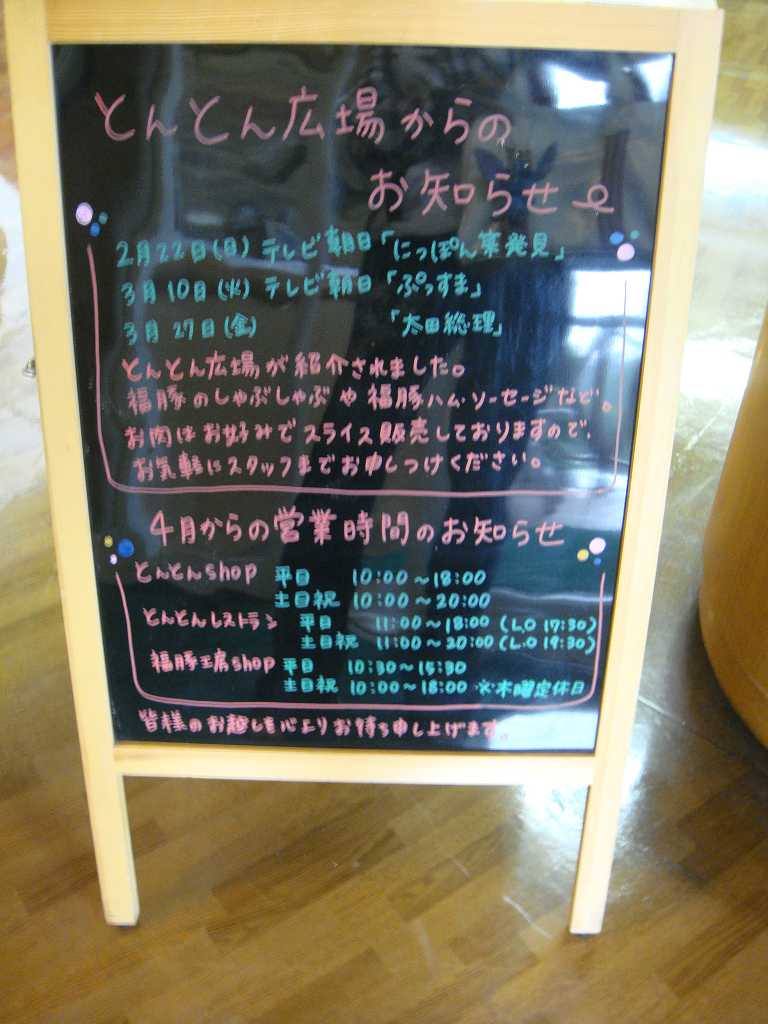 とんとん広場からの
お知らせ
2月22日(日) テレビ朝日「にっぽん菜発見」
3月10日(火) テレビ朝日「ぷっすま」
3月27日(金) 「太田総理」
とんとん広場が紹介されました。
福豚のしゃぶしゃぶや福豚ハム・ソーセージなど。
お肉はお好みでスライス販売しておりますので、
お気軽にスタッフまでお申しつけください。
4月からの営業時間のお知らせ
とんとんshop 平日 10:00~18:00
土日祝 10:00~20:00
とんとんレストラン 平日 11:00~18:00 (L.O 17:30)
土日祝 11:00~20:00 (L.O 19:30)
福豚工房shop 平日 10:30~15:30
土日祝 10:00~18:00 ※木曜定休日
皆様のお越しを心よりお待ち申し上げます。